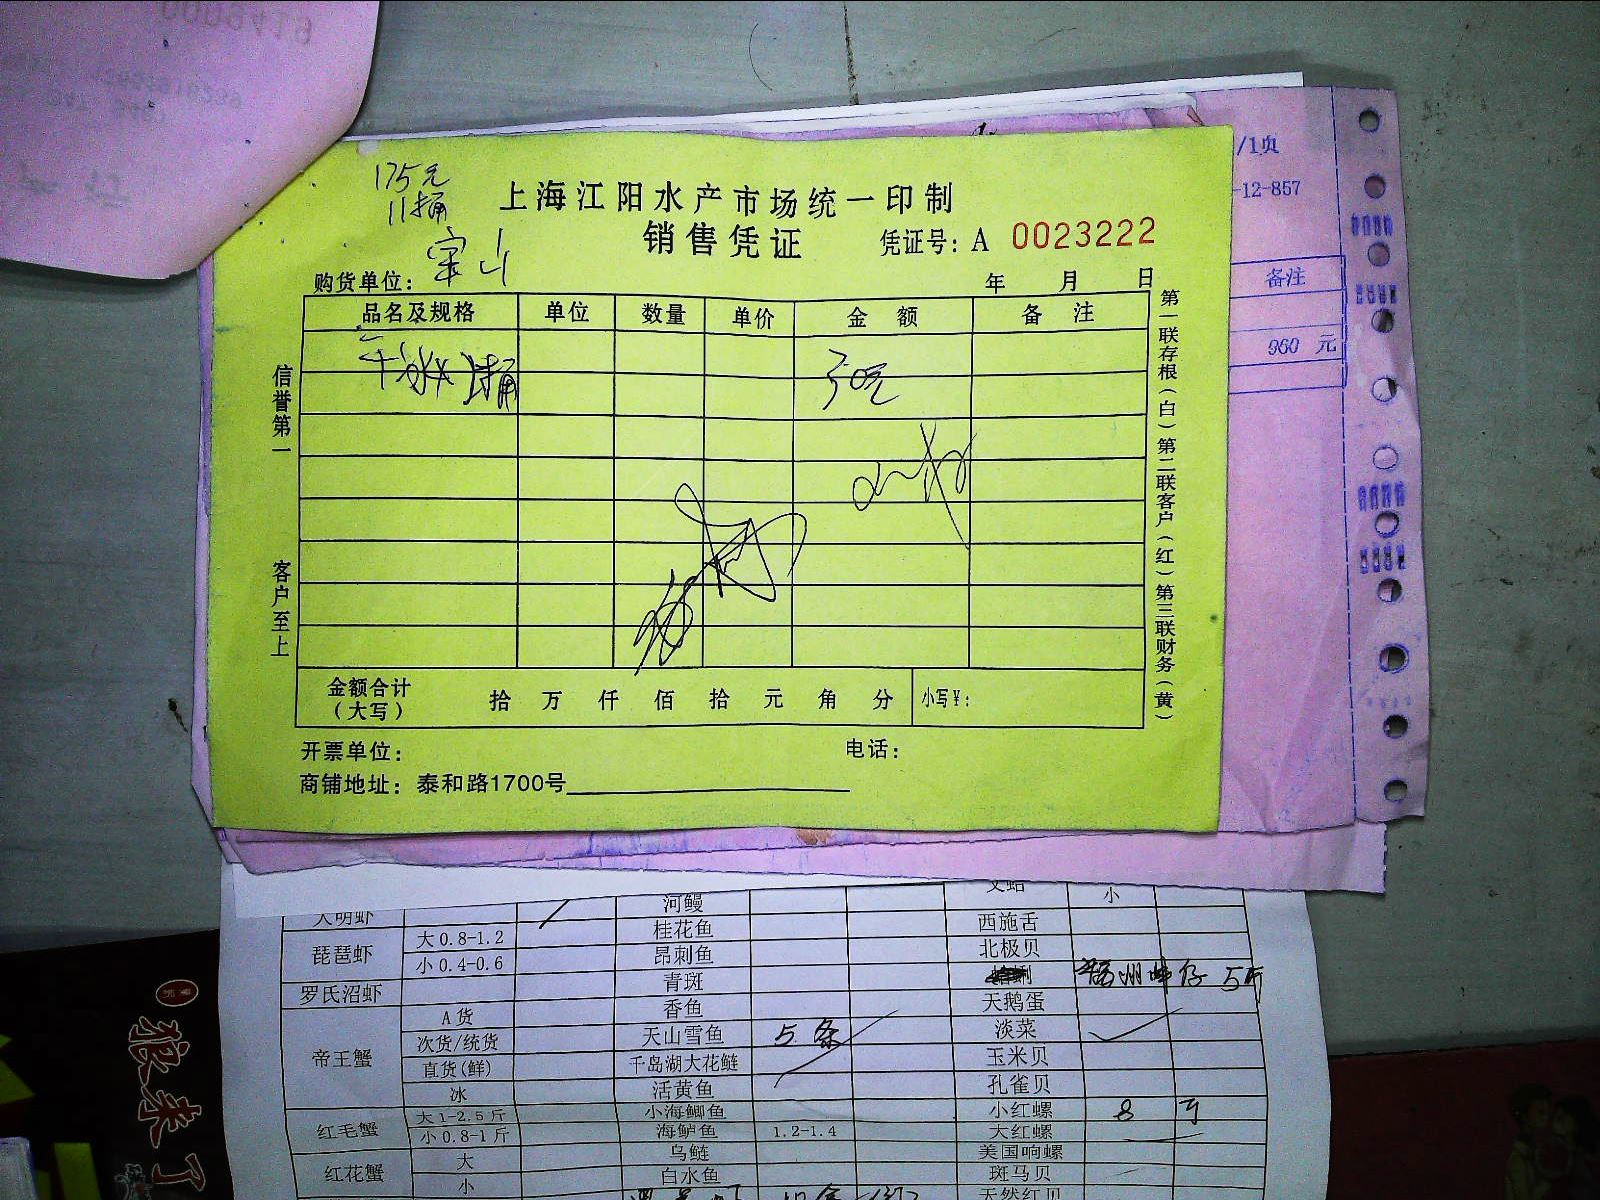 175元
11桶
上海江阳水产市场统一印制
销售凭证
凭证号：A 0023222
购货单位：宝山
年 月 日
品名及规格 单位 数量 单价 金额 备注
信誉第一
客户至上
第一联存根（白）第二联客户（红）第三联财务（黄）
金额合计（大写） 拾 万 仟 佰 拾 元 角 分 小写¥：
开票单位： 电话：
商铺地址：泰和路1700号
/1页
-12-857
备注
960 元
大明虾 河鳗 文蛤 小
琵琶虾 大0.8-1.2 桂花鱼 西施舌
小0.4-0.6 昂刺鱼 北极贝
青斑 5斤
罗氏沼虾 香鱼 天鹅蛋
帝王蟹 A货 天山雪鱼 5条 淡菜
次货/统货 千岛湖大花鲢 玉米贝
直货(鲜) 活黄鱼 孔雀贝
冰 小海鲫鱼 小红螺 8斤
红毛蟹 大1-2.5斤 海鲈鱼 1.2-1.4 大红螺
小0.8-1斤 乌鲢 美国响螺
红花蟹 大 白水鱼 斑马贝
小 天然红贝
狼来了